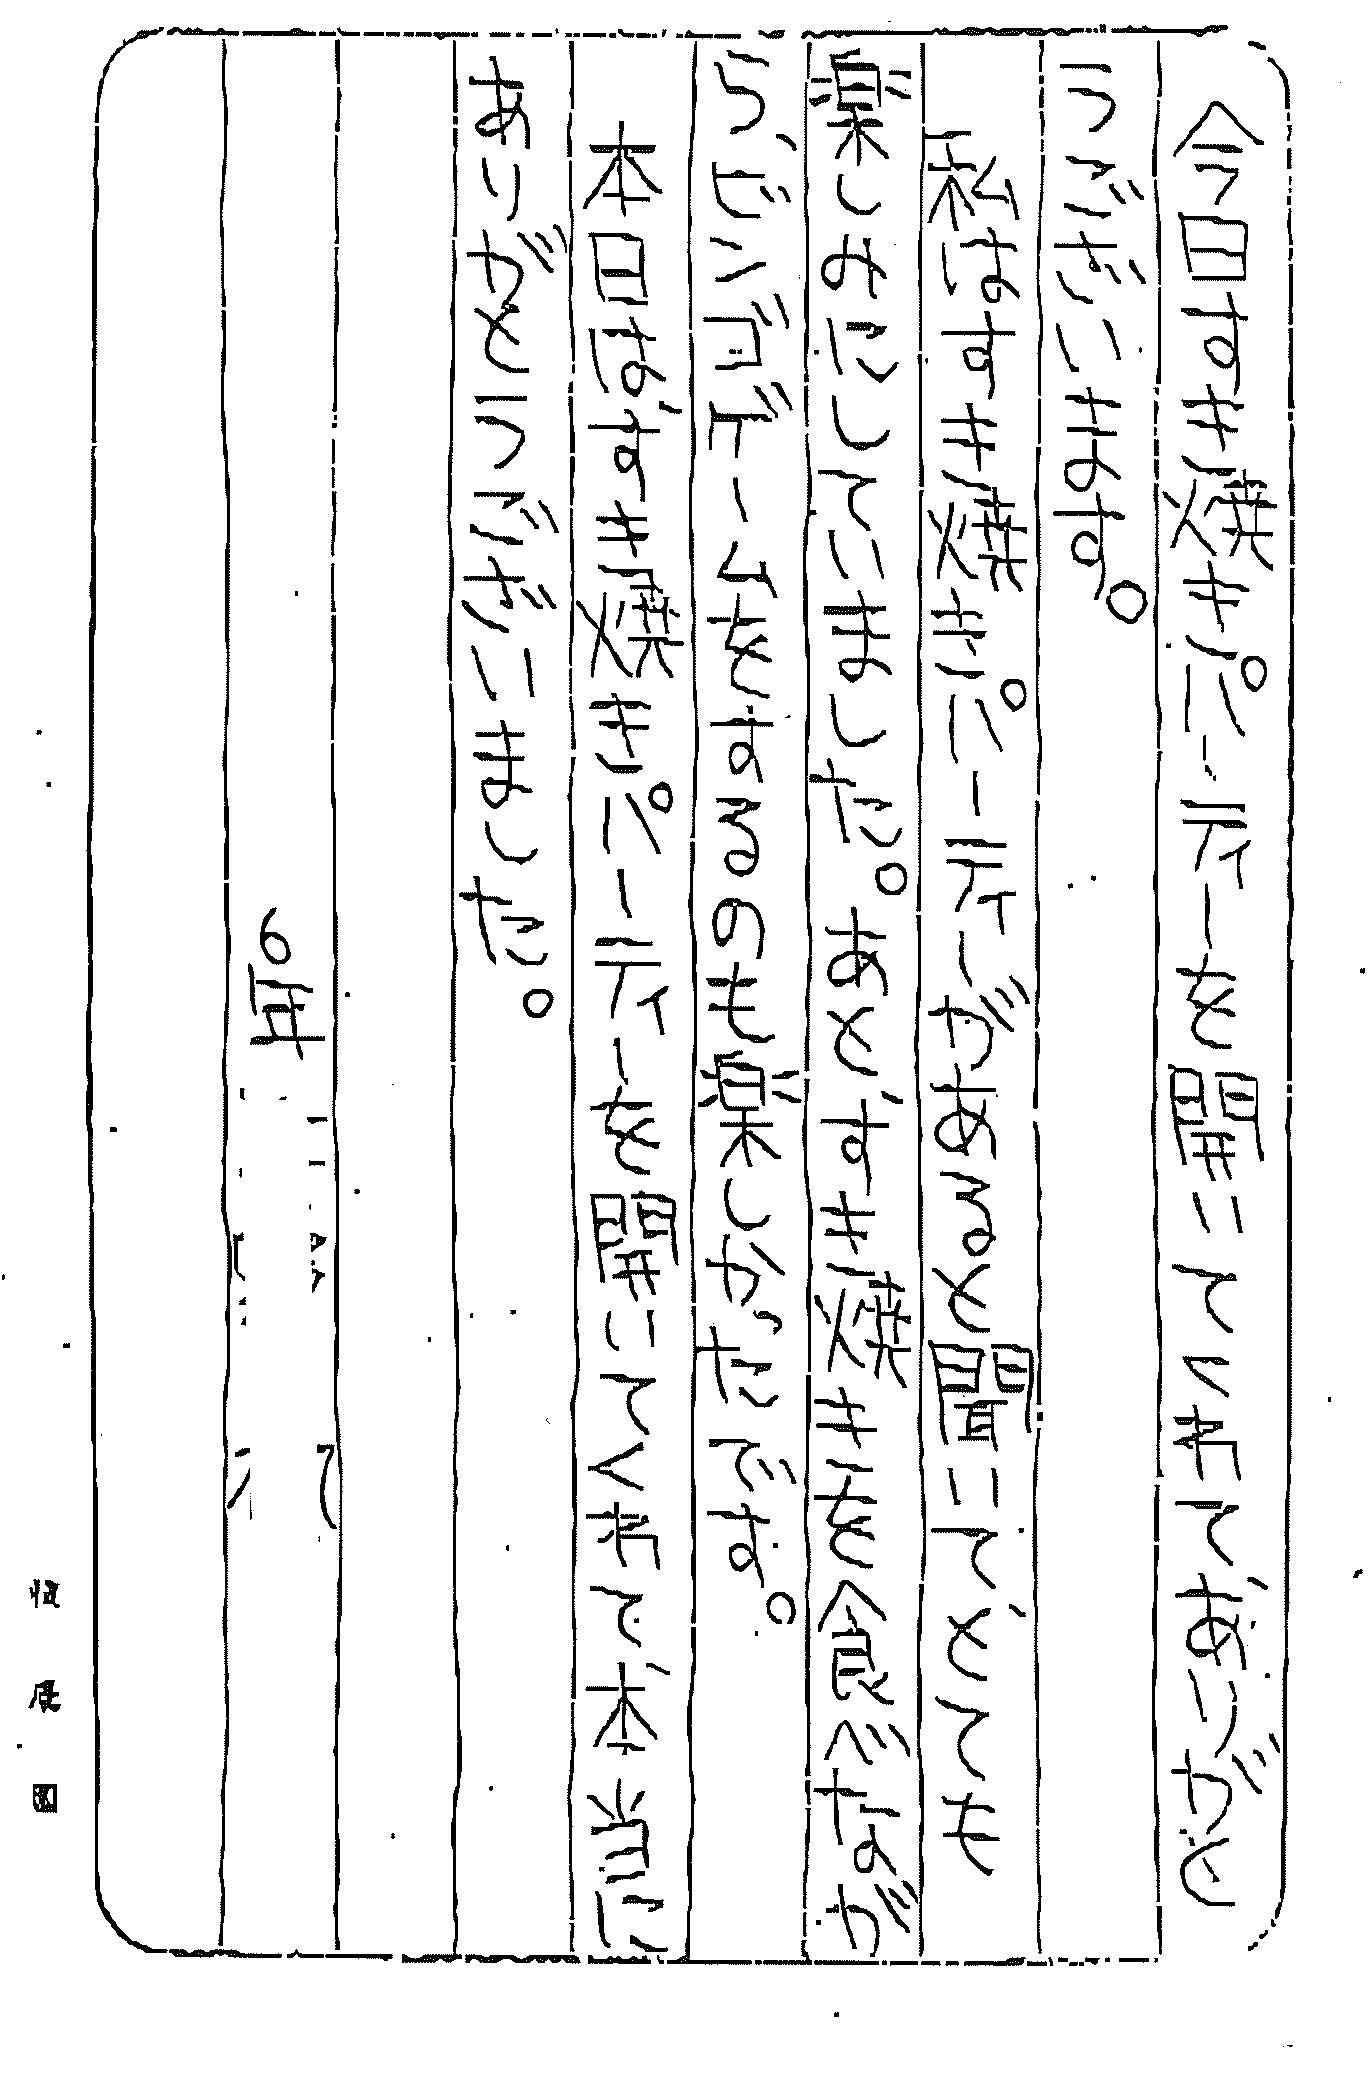 今日はすき焼きパーティーを開いてくれてありがと
うございます。
私はすき焼きパーティーがあると聞いて、とても
楽しみにしていました。あと、すき焼きを食べなが
ら、ビンゴゲームをするのも楽しみです。
本日は、すき焼きパーティーを開いてくれて、本当に
ありがとうございました。
6年